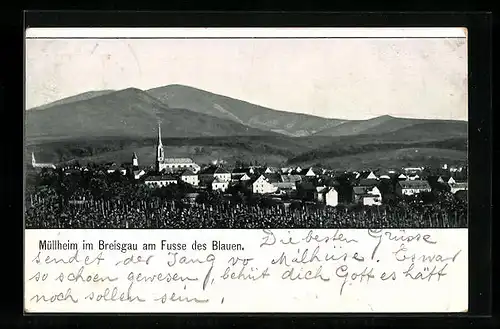 Müllheim im Breisgau am Fusse des Blauen.
Die besten Grüsse
sendet der Jang vo Mülhüse. Es war
so schoen gewesen, behüt dich Gott es hätt
noch sollen sein,